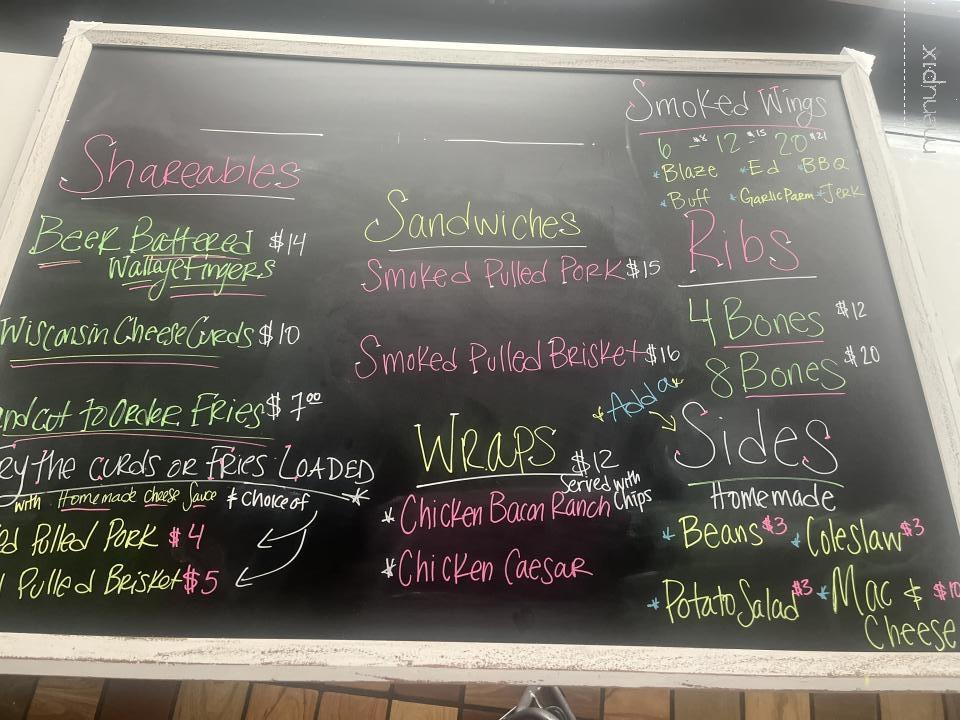 Shareables
Beer Battered $14
Walleye Fingers
Wisconsin Cheese Curds $10
Cut to Order Fries $7.00
the curds or Fries LOADED
with Homemade cheese Sauce & Choice of
Pulled Pork $4
Pulled Brisket $5
Sandwiches
Smoked Pulled Pork $15
Smoked Pulled Brisket $16
Wraps $12
Served with Chips
* Chicken Bacon Ranch
* Chicken Caesar
Smoked Wings
6 - $8 12 - $15 20 - $21
* Blaze * Ed * BBQ
* Buff * Garlic Parm * Jerk
Ribs
4 Bones $12
8 Bones $20
* Add a *
Sides
Homemade
* Beans $3 * Coleslaw $3
* Potato Salad $3 * Mac & $10
Cheese
menupix